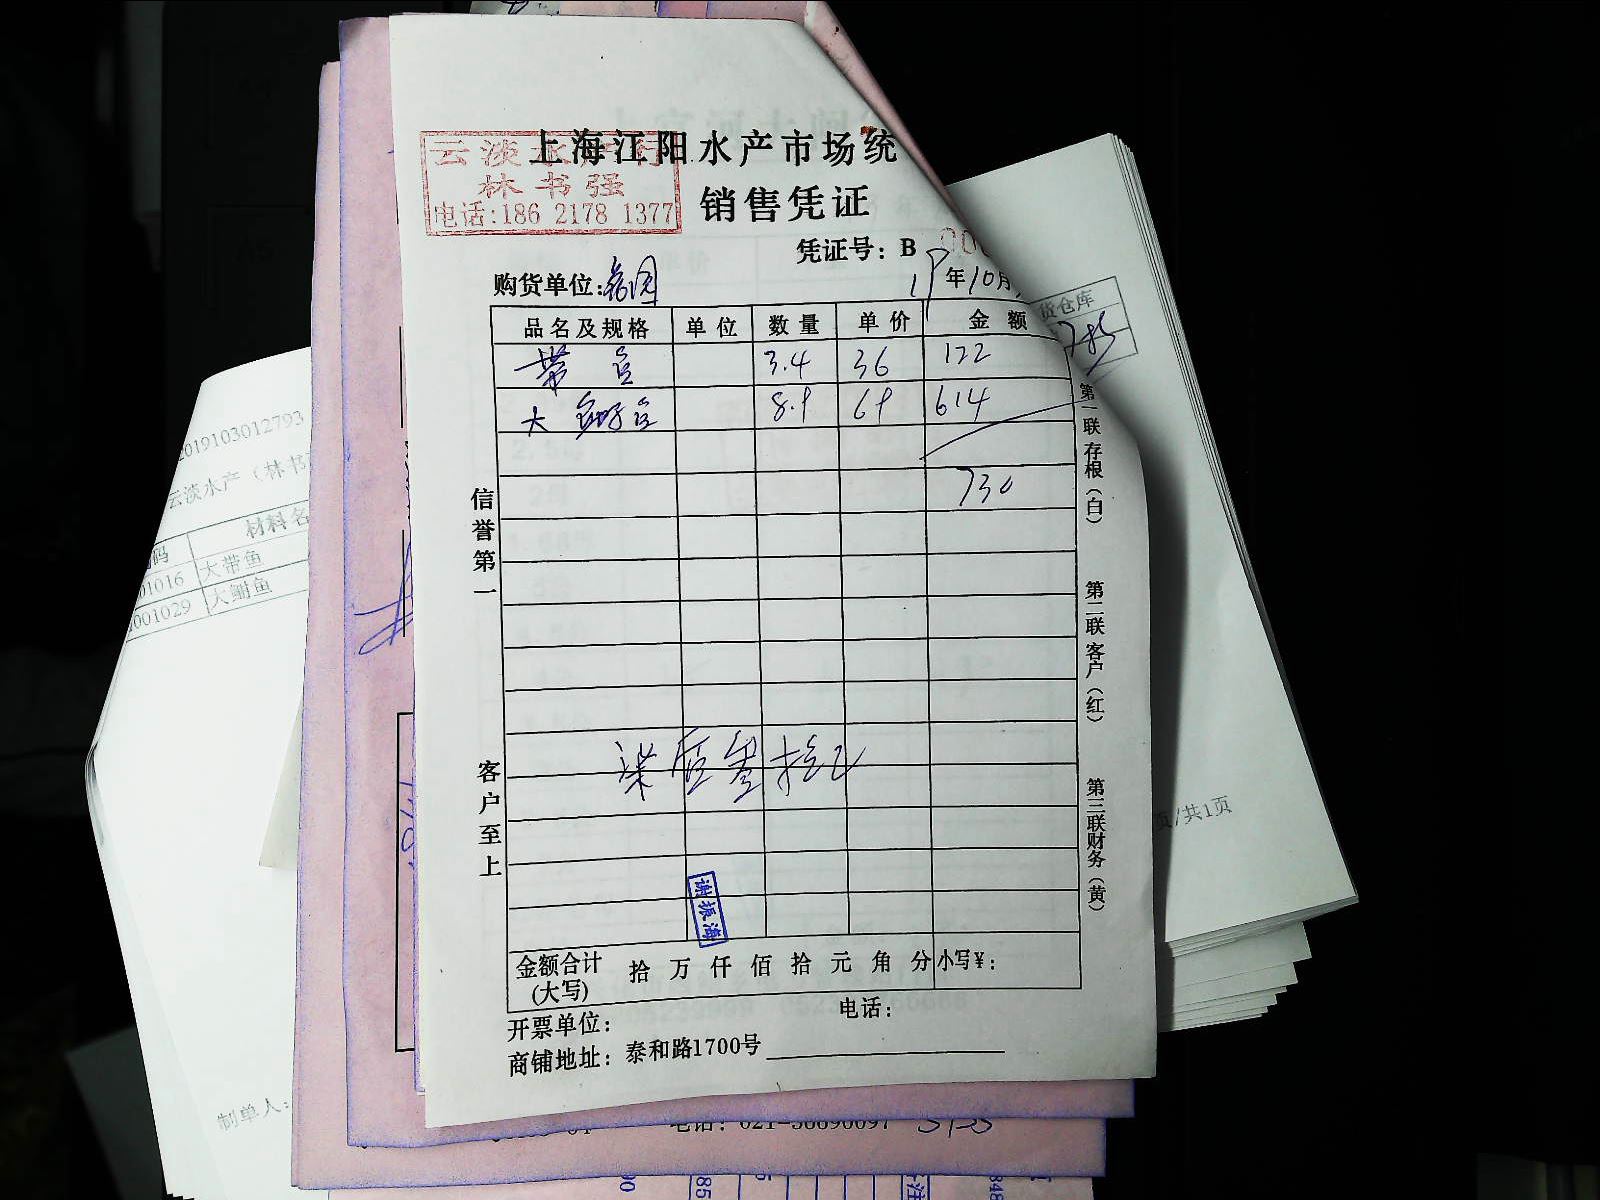 上海江阳水产市场统
销售凭证
云淡水产行
林书强
电话:186 2178 1377
凭证号: B 00
购货单位:
19年10月
品名及规格 单位 数量 单价 金额
带鱼 3.4 36 122
大鲳鱼 8.9 69 614
730
柒佰叁拾元
谢振海
金额合计(大写) 拾 万 仟 佰 拾 元 角 分 小写¥:
开票单位: 电话:
商铺地址: 泰和路1700号
信誉第一
客户至上
第一联存根(白)
第二联客户(红)
第三联财务(黄)
2019103012793
云淡水产(林书
码 材料名
01016 大带鱼
001029 大鲳鱼
制单人:
货仓库
785
页/共1页
电话: 021-56690697